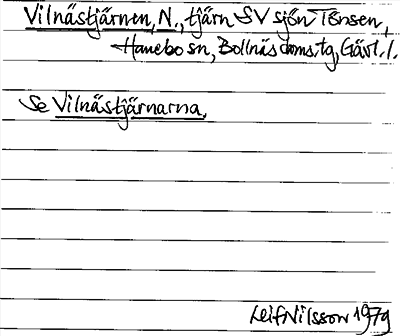 Vilnästjärnen, N., tjärn SV sjön Tönsen,
Hanebo sn, Bollnäs doms. tg, Gävl. l.
Se Vilnästjärnarna.
Leif Nilsson 1979